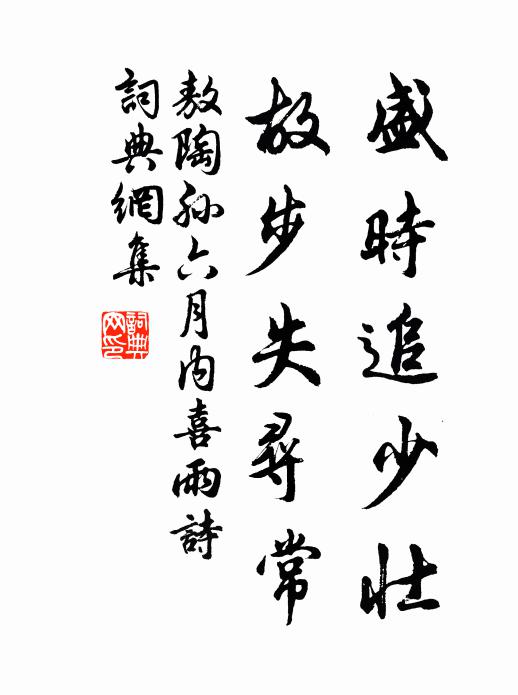 盛時追少壯
故步失尋常
敖陶孫六月內喜雨詩
詞典網集
詞典網印